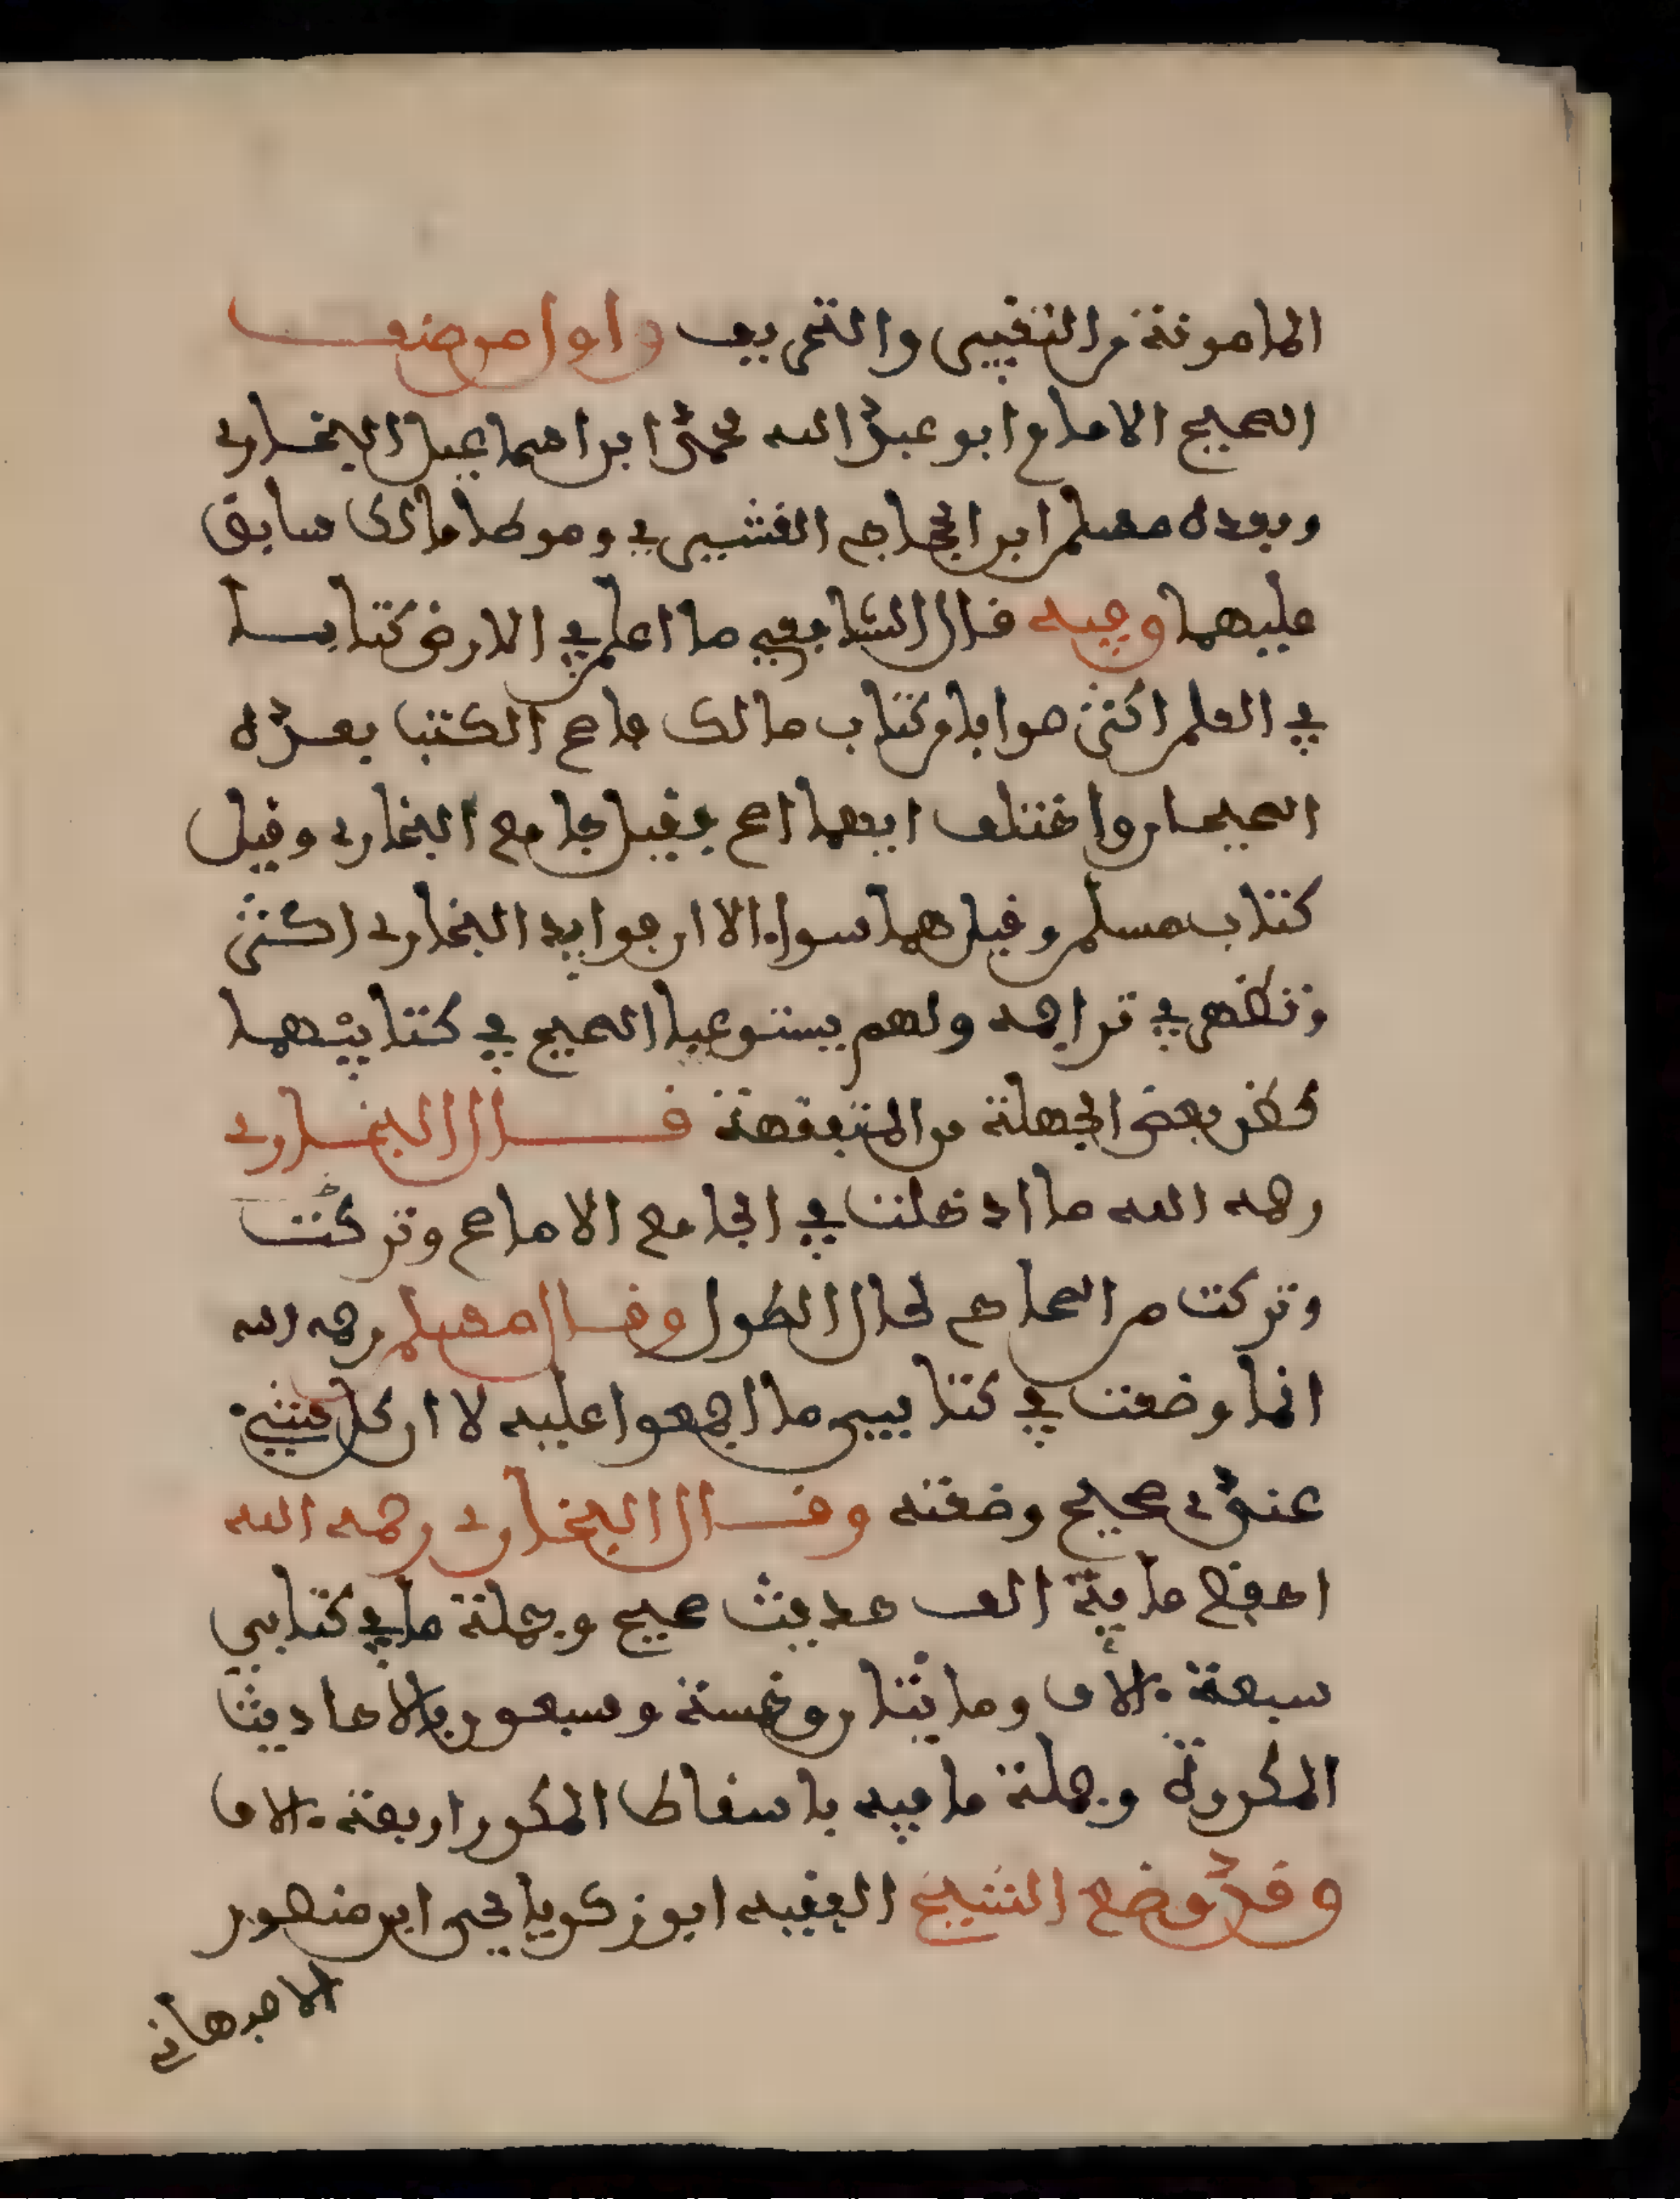 المامونة من التغيير والتحريف واول من صنف
الصحيح الامام ابو عبد الله محمد ابن اسماعيل البخاري
وبعده مسلم ابن الحجاج القشيري وموطا مالك سابق
عليهما وفيه قال الشافعي ما اعلم في الارض كتابا
في العلم اكثر صوابا من كتاب مالك فاصح الكتب بعده
الصحيحان واختلف ايهما اصح فقيل جامع البخاري وقيل
كتاب مسلم وقيل هما سواء الا ان فوايد البخاري اكثر
وتظهر في تراجمه ولم يستوعبا الصحيح في كتابيهما
كظن بعض الجهلة من المتفقهة قال البخاري
رحمه الله ما ادخلت في الجامع الا ما صح وتركت
وتركت من الصحاح لحال الطول وقال مسلم رحمه الله
انما وضعت في كتابي ما اجمعوا عليه لا ان كل شيء
عندي صحيح وضعته وقال البخاري رحمه الله
احفظ ماية الف حديث صحيح وجملة ما في كتابي
سبعة ءالاف ومايتان وخمسة وسبعون بالاحاديث
المكررة وجملة ما فيه باسقاط المكرر اربعة ءالاف
وقد وضع الشيخ الفقيه ابو زكريا يحيى ابن منصور
الاصبهاني